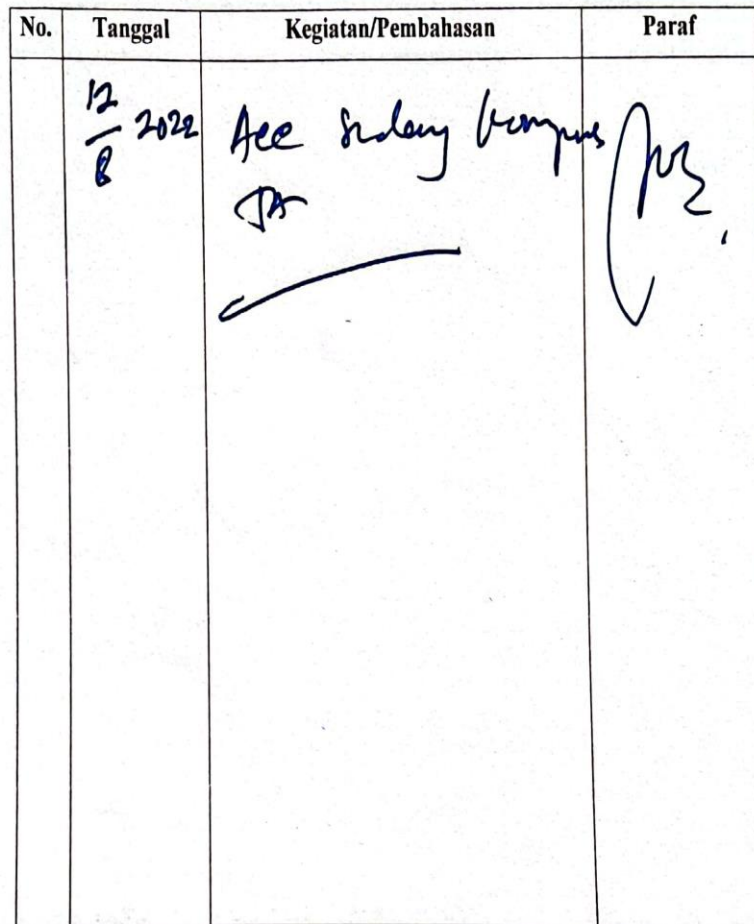 No. Tanggal Kegiatan/Pembahasan Paraf
12/8 2022 Acc Sidang Kompre
TA